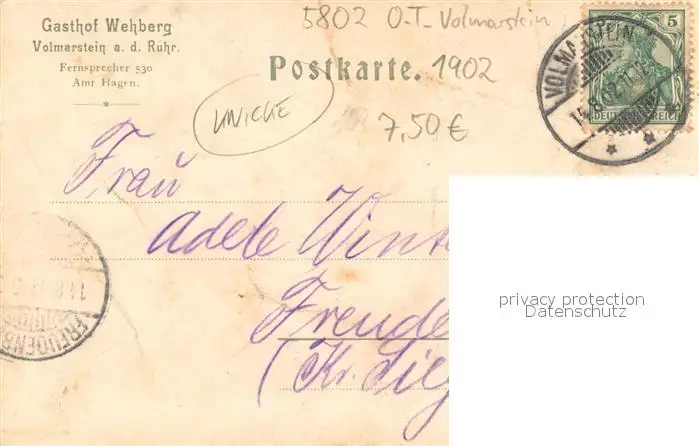 Gasthof Wehberg
Volmarstein a. d. Ruhr.
Fernsprecher 530
Amt Hagen.
5802 O.-T. Volmarstein
Postkarte. 1902
UNICKE
7,50 €
5
DEUTSCHES REICH
VOLMARSTEIN
Frau
Adele Wint
Freude
(Kr. Sieg
FREUDENB
privacy protection
Datenschutz